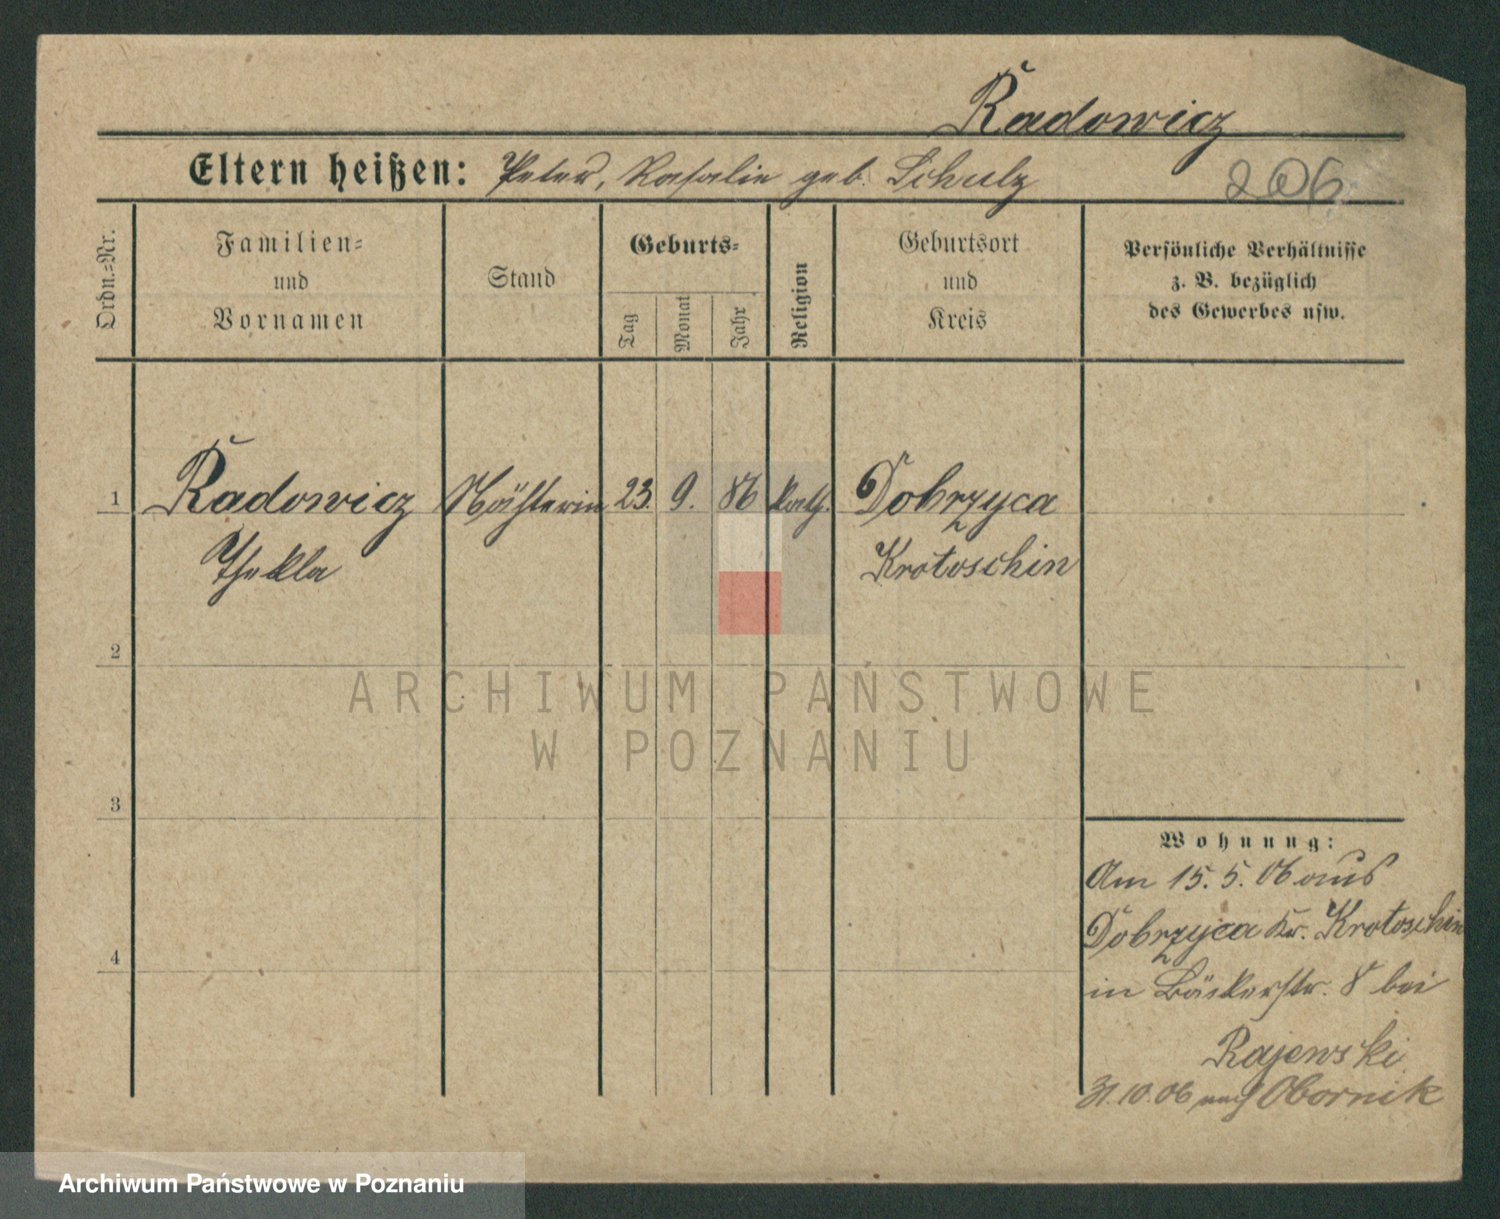 Radowicz
Eltern heißen: Peter, Rosalie geb. Schulz 206
Ordn.=Nr.
Familien=
und
Vornamen
Stand
Geburts=
Tag
Monat
Jahr
Religion
Geburtsort
und
Kreis
Persönliche Verhältnisse
z. B. bezüglich
des Gewerbes usw.
1 Radowicz Nähterin 23. 9. 86 kath. Dobrzyca
Thekla Krotoschin
2
ARCHIWUM PAŃSTWOWE
W POZNANIU
3
Wohnung:
Am 15. 5. 06 aus
Dobrzyca Kr. Krotoschin
4
in Bäckerstr. 8 bei
Rajewski
31.10.06 nach Obornik
Archiwum Państwowe w Poznaniu